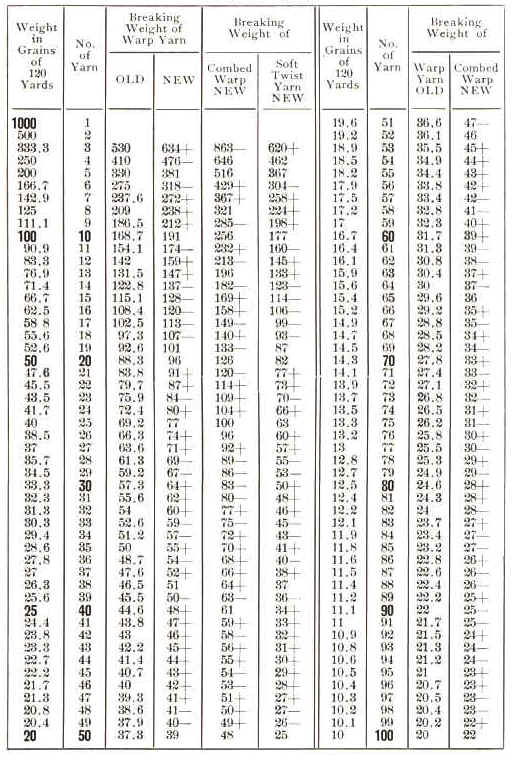 Weight in Grains of 120 Yards | No. of Yarn | Breaking Weight of Warp Yarn | Breaking Weight of | Weight in Grains of 120 Yards | No. of Yarn | Breaking Weight of
OLD | NEW | Combed Warp NEW | Soft Twist Yarn NEW | Warp Yarn OLD | Combed Warp NEW
1000 1 19.6 51 36.6 47—
500 2 19.2 52 36.1 46
333.3 3 530 634+ 863— 620+ 18.9 53 35.5 45+
250 4 410 476— 646 462 18.5 54 34.9 44+
200 5 330 381 516 367 18.2 55 34.4 43+
166.7 6 275 318— 429+ 304— 17.9 56 33.8 42+
142.9 7 237.6 272+ 367+ 258+ 17.5 57 33.4 42—
125 8 209 238+ 321 224+ 17.2 58 32.8 41—
111.1 9 186.5 212+ 285— 198+ 17 59 32.3 40+
100 10 168.7 191 256 177 16.7 60 31.7 39+
90.9 11 154.1 174— 232+ 160— 16.4 61 31.3 39—
83.3 12 142 159+ 213— 145+ 16.1 62 30.8 38—
76.9 13 131.5 147+ 196 133+ 15.9 63 30.4 37+
71.4 14 122.8 137 182— 123— 15.6 64 30 37—
66.7 15 115.1 128— 169+ 114— 15.4 65 29.6 36
62.5 16 108.4 120— 158+ 106— 15.2 66 29.2 35+
58 8 17 102.5 113— 149— 99— 14.9 67 28.8 35—
55.6 18 97.3 107— 140+ 93— 14.7 68 28.5 34+
52.6 19 92.6 101 133— 87 14.5 69 28.2 34—
50 20 88.3 96 126 82 14.3 70 27.8 33+
47.6 21 83.8 91+ 120— 77+ 14.1 71 27.4 33—
45.5 22 79.7 87+ 114+ 73— 13.9 72 27.1 32+
43.5 23 75.9 84— 109— 70— 13.7 73 26.8 32—
41.7 24 72.4 80+ 104+ 66+ 13.5 74 26.5 31+
40 25 69.2 77 100 63 13.3 75 26.2 31—
38.5 26 66.3 74+ 96 60+ 13.2 76 25.8 30+
37 27 63.6 71+ 92+ 57+ 13 77 25.5 30—
35.7 28 61.3 69— 89— 55— 12.8 78 25.3 29+
34.5 29 59.2 67— 86— 53— 12.7 79 24.9 29—
33.3 30 57.3 64+ 83— 50+ 12.5 80 24.6 28+
32.3 31 55.6 62 80— 48+ 12.4 81 24.3 28—
31.3 32 54 60+ 77+ 46+ 12.2 82 24 28—
30.3 33 52.6 59— 75— 45— 12.1 83 23.7 27+
29.4 34 51.2 57— 72+ 43— 11.9 84 23.4 27—
28.6 35 50 55+ 70+ 41+ 11.8 85 23.2 27—
27.8 36 48.7 54— 68+ 40— 11.6 86 22.8 26+
27 37 47.6 52+ 66— 38+ 11.5 87 22.6 26—
26.3 38 46.5 51 64+ 37 11.4 88 22.4 26—
25.6 39 45.5 50— 63— 36— 11.2 89 22.2 25+
25 40 44.6 48+ 61 34+ 11.1 90 22 25—
24.4 41 43.8 47— 59+ 33— 11 91 21.7 25—
23.8 42 43 46— 58— 32+ 10.9 92 21.5 24+
23.3 43 42.2 45— 56+ 31+ 10.8 93 21.3 24—
22.7 44 41.4 44+ 55+ 30+ 10.6 94 21.2 24—
22.2 45 40.7 43+ 54— 29+ 10.5 95 21 23+
21.7 46 40 42+ 53— 28— 10.4 96 20.7 23+
21.3 47 39.3 41+ 51+ 27+ 10.3 97 20.5 23—
20.8 48 38.6 41— 50— 27— 10.2 98 20.4 23—
20.4 49 37.9 40— 49+ 26— 10.1 99 20.2 22+
20 50 37.3 39 48 25 10 100 20 22